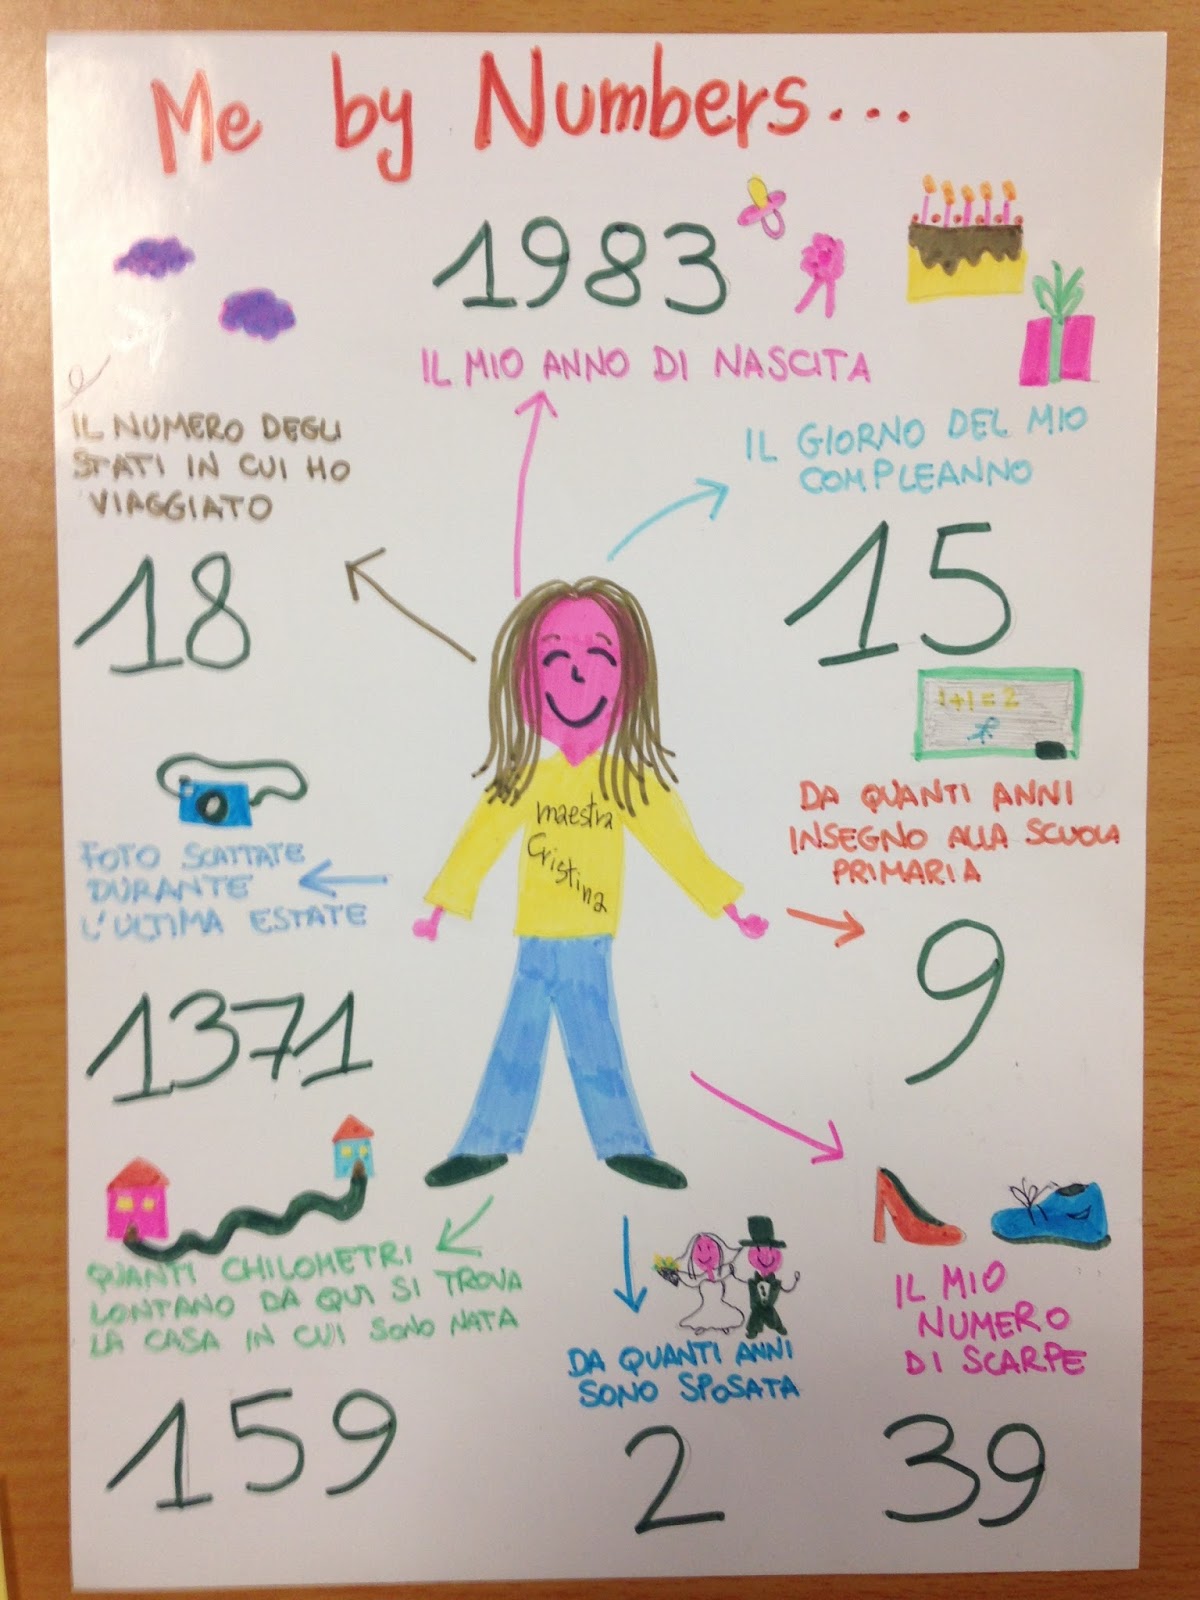 Me by Numbers...
1983
IL MIO ANNO DI NASCITA
IL NUMERO DEGLI
STATI IN CUI HO
VIAGGIATO
18
IL GIORNO DEL MIO
COMPLEANNO
15
1+1=2
DA QUANTI ANNI
INSEGNO ALLA SCUOLA
PRIMARIA
9
maestra
Cristina
FOTO SCATTATE
DURANTE
L'ULTIMA ESTATE
1371
QUANTI CHILOMETRI
LONTANO DA QUI SI TROVA
LA CASA IN CUI SONO NATA
159
DA QUANTI ANNI
SONO SPOSATA
2
IL MIO
NUMERO
DI SCARPE
39